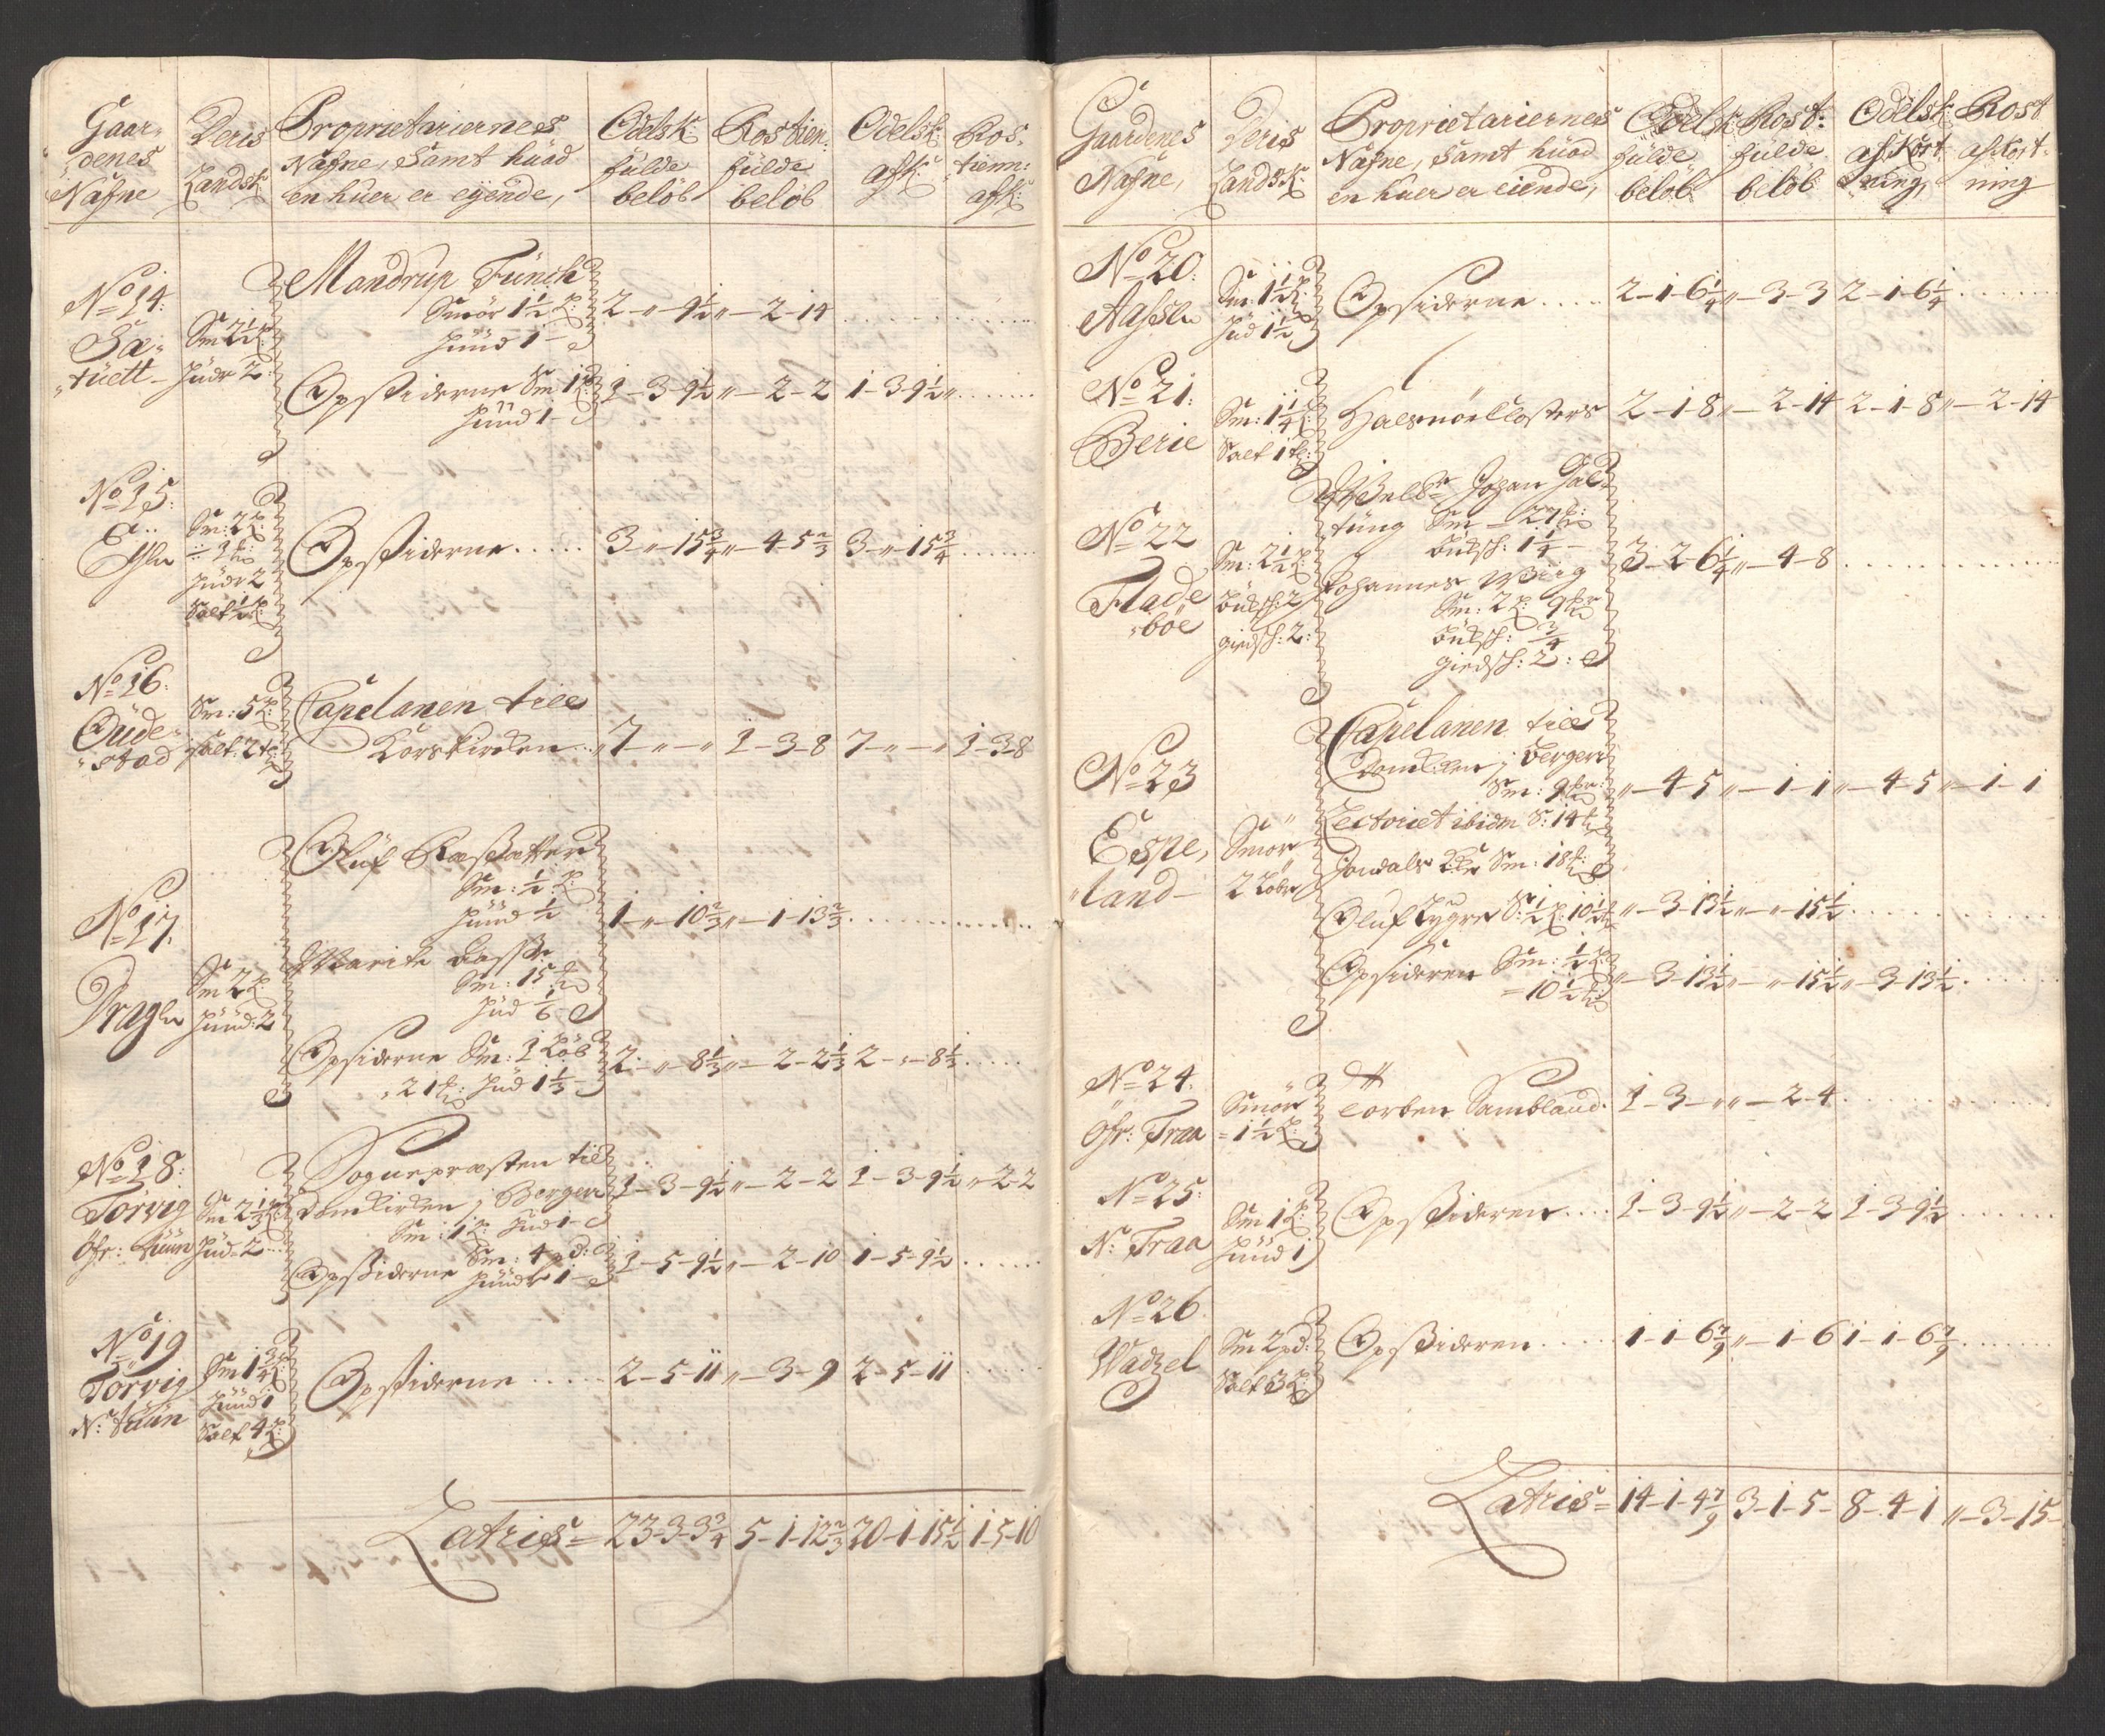 Gaar-
denes
Nafne
Deris
Landsk:
Proprietariernes
Nafne, Samt huad
en huer er eyende,
Odelsk:
fulde
beløb
Rostien:
fulde
beløb
Odelsk:
afk:
Ros-
tienn:
afk:
No 14:
Sæ-
tuett-
Sm 2½
Huder 2
Mandrup Tünch
Smör 1½
Huud 1-
2-"-9½ "-2-14
Opsiderne Sm 1
Huud 1-
1-3-9½ "-2-2 1-3-9½ "
No 15:
Sm: 2
÷ 3
Huder 2
Salt ½
Opsiderne
3-"-15¾ "-4-5⅔ 3-"-15¾
No 16:
Oude-
stad
Sm: 5
Salt: 2
Capelanen till
Korskircken
7-"-" 1-3-8 7-"-" 1-3-8
No 17.
Dragln
Sm 2
Huud: 2
Oluf
Sm: ½
Huud ½
1-"-10⅔ "-1-13⅔
Marite Basse
Sm: 15
Hud ⅙
Opsiderne Sm: 1 Løb
21 Hud 1⅓
2-"-8⅓ "-2-2⅓ 2-"-8⅓
No 18:
Torvig
Öfr: tüün
Sm 2⅓
Hud=2
Sognepræsten til
Domkirken j Bergen
Sm: 1 Hud 1-
1-3-9½ "-2-2 1-3-9½ "-2-2
Opsiderne Sm: 4 pd:
Huude 1-
1-5-9½ "-2-10 1-5-9½
No 19
Torvig
N: tüün
Sm 1¾
Huud 1
Salt 4
Opsiderne
2-5-11 "-3-9 2-5-11
Latris= 23-3-3¾ 5-1-12⅔ 20-1-15½ 1-5-10
Gaardenes
Nafne,
Deris
Landsk
Proprietariernes
Nafne, Samt huad
en huer er eiende,
Odelsk
fulde
beløb
Rost:
fulde
beløb
Odelsk:
afkort
ning,
Rost
afkort-
ning
No 20:
Sm: 1½
Hud 1½
Opsiderne
2-1-6¼ "-3-3 2-1-6¼
No 21:
Berie
Sm: 1¼
Salt 1
Halsnöe Closters
2-1-8 "-2-14 2-1-8 "-2-14
No 22
Flade
"böe
Sm: 2½
Buksk: 2
giedsk: 2:
Welb: Johan Gal-
tung Sm - 27
Buksk: 1¼-
Johannes Wiig
Sm: 2 9
Buksk: ¾
giedsk: 2:
3-2-6¼ "-4-8
No 23
Espe,
"land-
Smör
2 Løber
Capelanen till
Domkirken j Bergen
Sm: 9
"-4-5 "-1-1 "-4-5 "-1-1
Lectoriet ibidem S: 14
Jondals Sm: 18
Oluf S: ½ 10½
"-3-13½ "-"-15½
Opsideren Sm: ½
=10½
"-3-13½ "-"-15½ "-3-13½
No 24:
Öfr: Traa
Smör
=1½
Torben Sambland
1-3-" "-2-4
No 25:
N: Traa
Sm 1
Huud 1
Opsideren
1-3-9½ "-2-2 1-3-9½
No 26
Wadzel
Sm 2pd:
Salt 3
Opsideren
1-1-6 7/9 "-1-6 1-1-6 7/9
Latris= 14-1-4 7/9 3-1-5- 8-4-1 "-3-15-